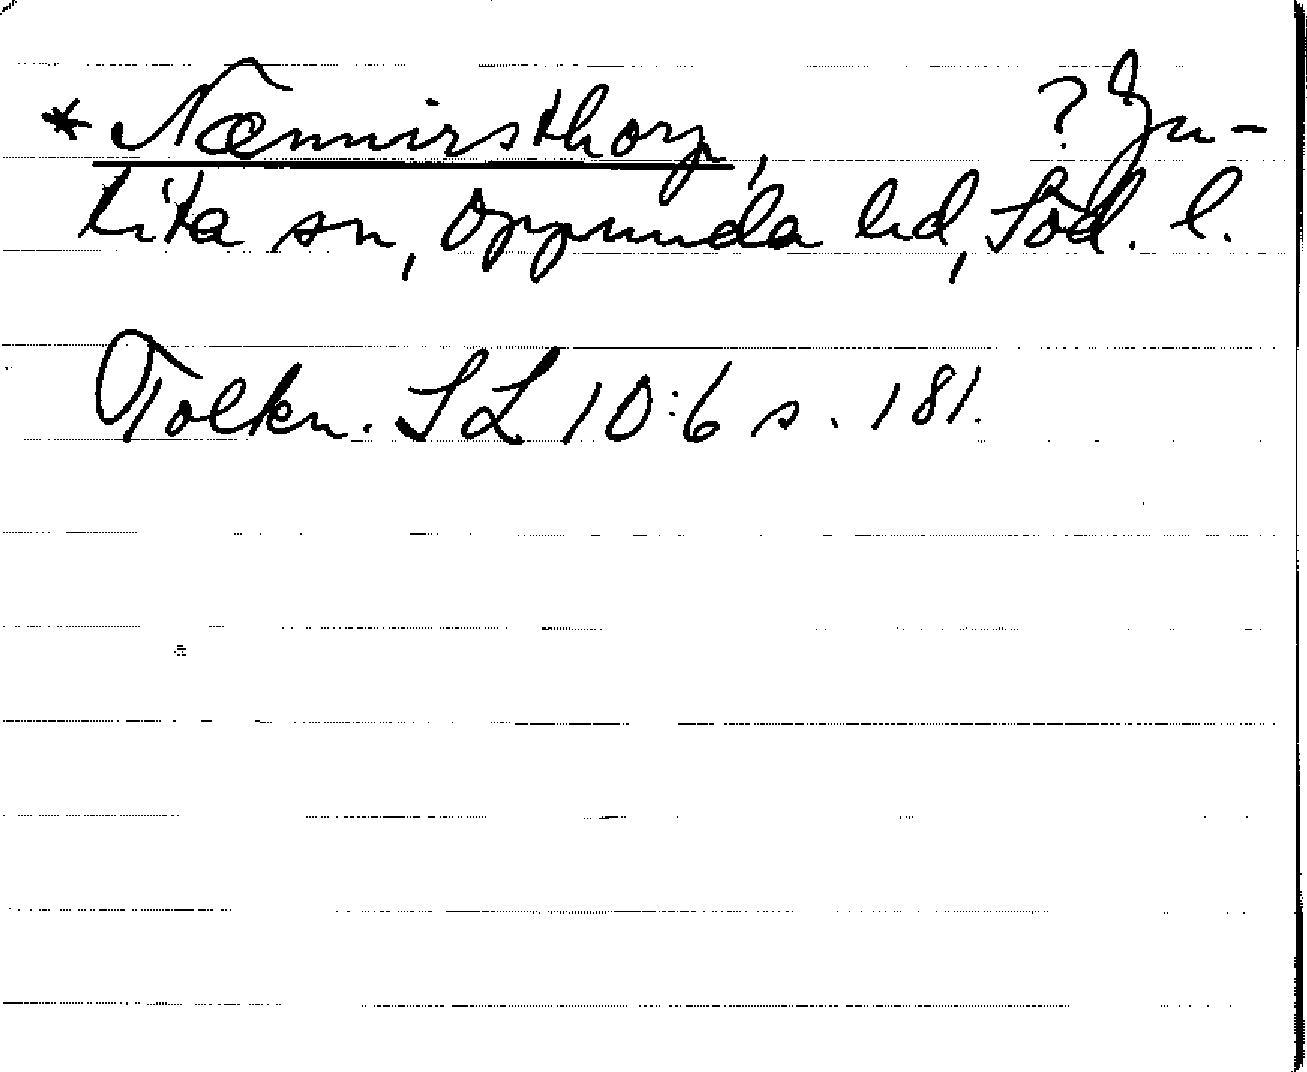 * Næmnirsthorp, ? Ju-
lita sn, Oppunda hd, Söd. l.
Tolkn. SL 10:6 s. 181.